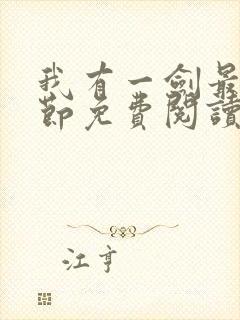 我有一劍最
節免費閱讀
江亨